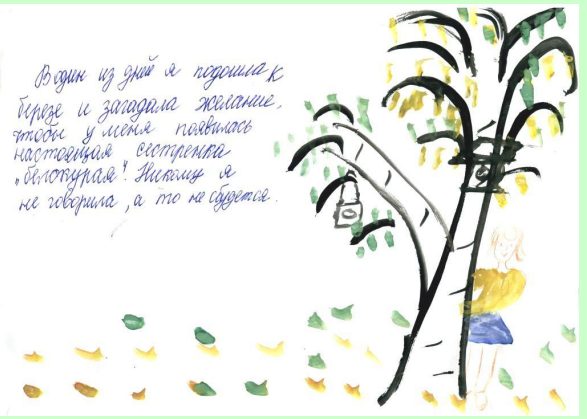 В один из дней я подошла к
березе и загадала желание,
чтобы у меня появилась
настоящая сестренка
„белокурая“. Никому я
не говорила, а то не сбудется.